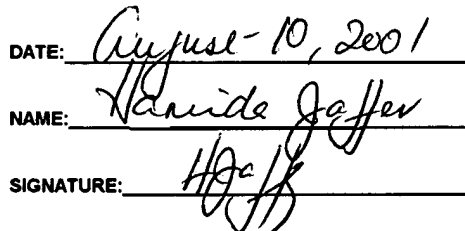 DATE: August 10, 2001
NAME: Hamida Jaffer
SIGNATURE: HJaff